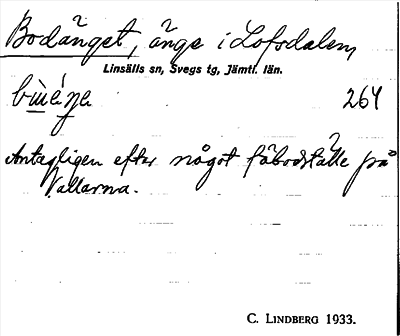 Bodänget, änge i Lofsdalen,
Linsälls sn, Svegs tg, Jämtl. län.
264
Antagligen efter något fäbodställe på
Vallarna.
C. LINDBERG 1933.